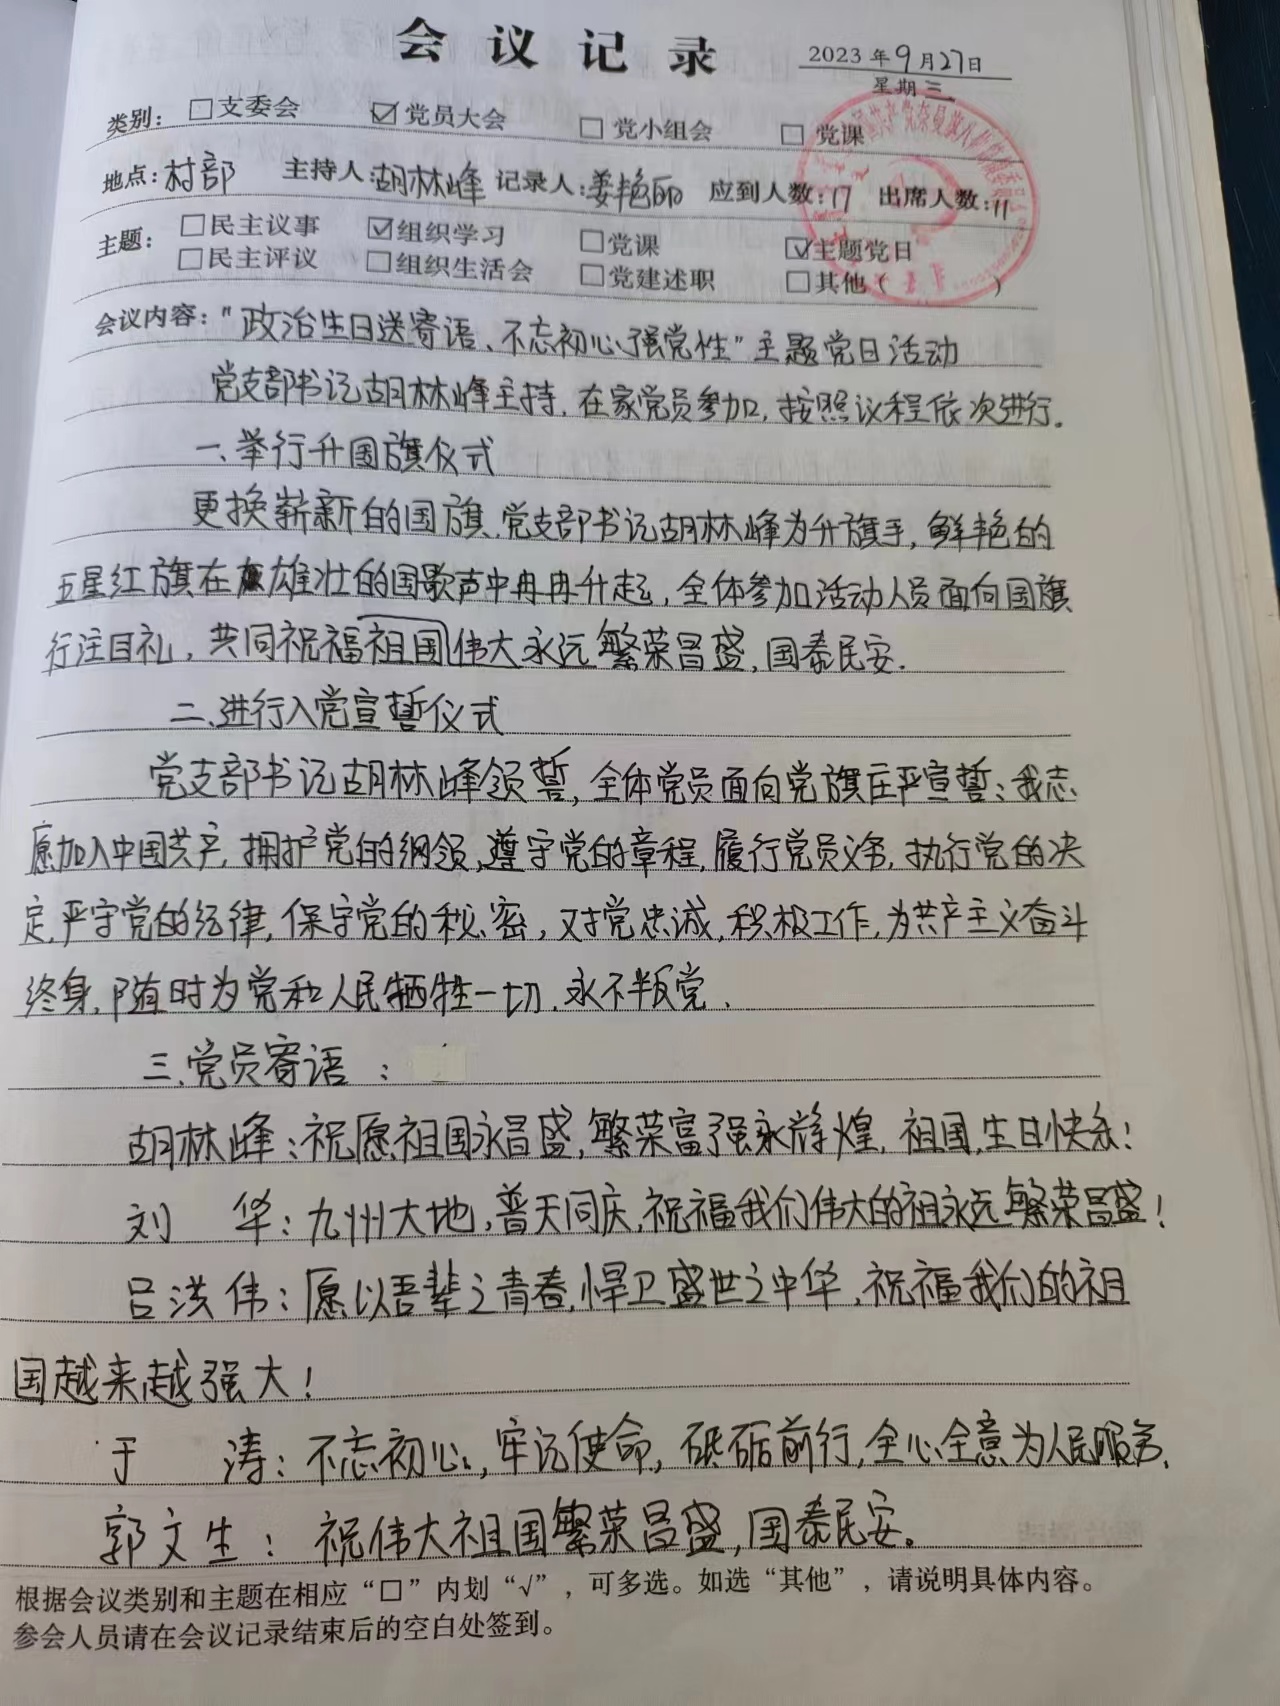 会议记录
2023年9月27日
星期三
类别：□支委会 ☑党员大会 □党小组会 □党课
地点：村部 主持人：胡林峰 记录人：姜艳丽 应到人数：17 出席人数：11
主题：□民主议事 ☑组织学习 □党课 ☑主题党日
□民主评议 □组织生活会 □党建述职 □其他（ ）
会议内容："政治生日送寄语、不忘初心强党性"主题党日活动
党支部书记胡林峰主持，在家党员参加，按照议程依次进行。
一、举行升国旗仪式
更换崭新的国旗，党支部书记胡林峰为升旗手，鲜艳的
五星红旗在雄壮的国歌声中冉冉升起，全体参加活动人员面向国旗
行注目礼，共同祝福祖国伟大永远繁荣昌盛，国泰民安.
二、进行入党宣誓仪式
党支部书记胡林峰领誓，全体党员面向党旗庄严宣誓：我志
愿加入中国共产，拥护党的纲领，遵守党的章程，履行党员义务，执行党的决
定，严守党的纪律，保守党的秘密，对党忠诚，积极工作，为共产主义奋斗
终身，随时为党和人民牺牲一切，永不叛党.
三、党员寄语：
胡林峰：祝愿祖国永昌盛，繁荣富强永辉煌，祖国，生日快乐！
刘 华：九州大地，普天同庆，祝福我们伟大的祖永远繁荣昌盛！
吕洪伟：愿以吾辈之青春，悍卫盛世之中华，祝福我们的祖
国越来越强大！
于 涛：不忘初心，牢记使命，砥砺前行，全心全意为人民服务.
郭文生：祝伟大祖国繁荣昌盛，国泰民安。
根据会议类别和主题在相应“□”内划“√”，可多选。如选“其他”，请说明具体内容。
参会人员请在会议记录结束后的空白处签到。